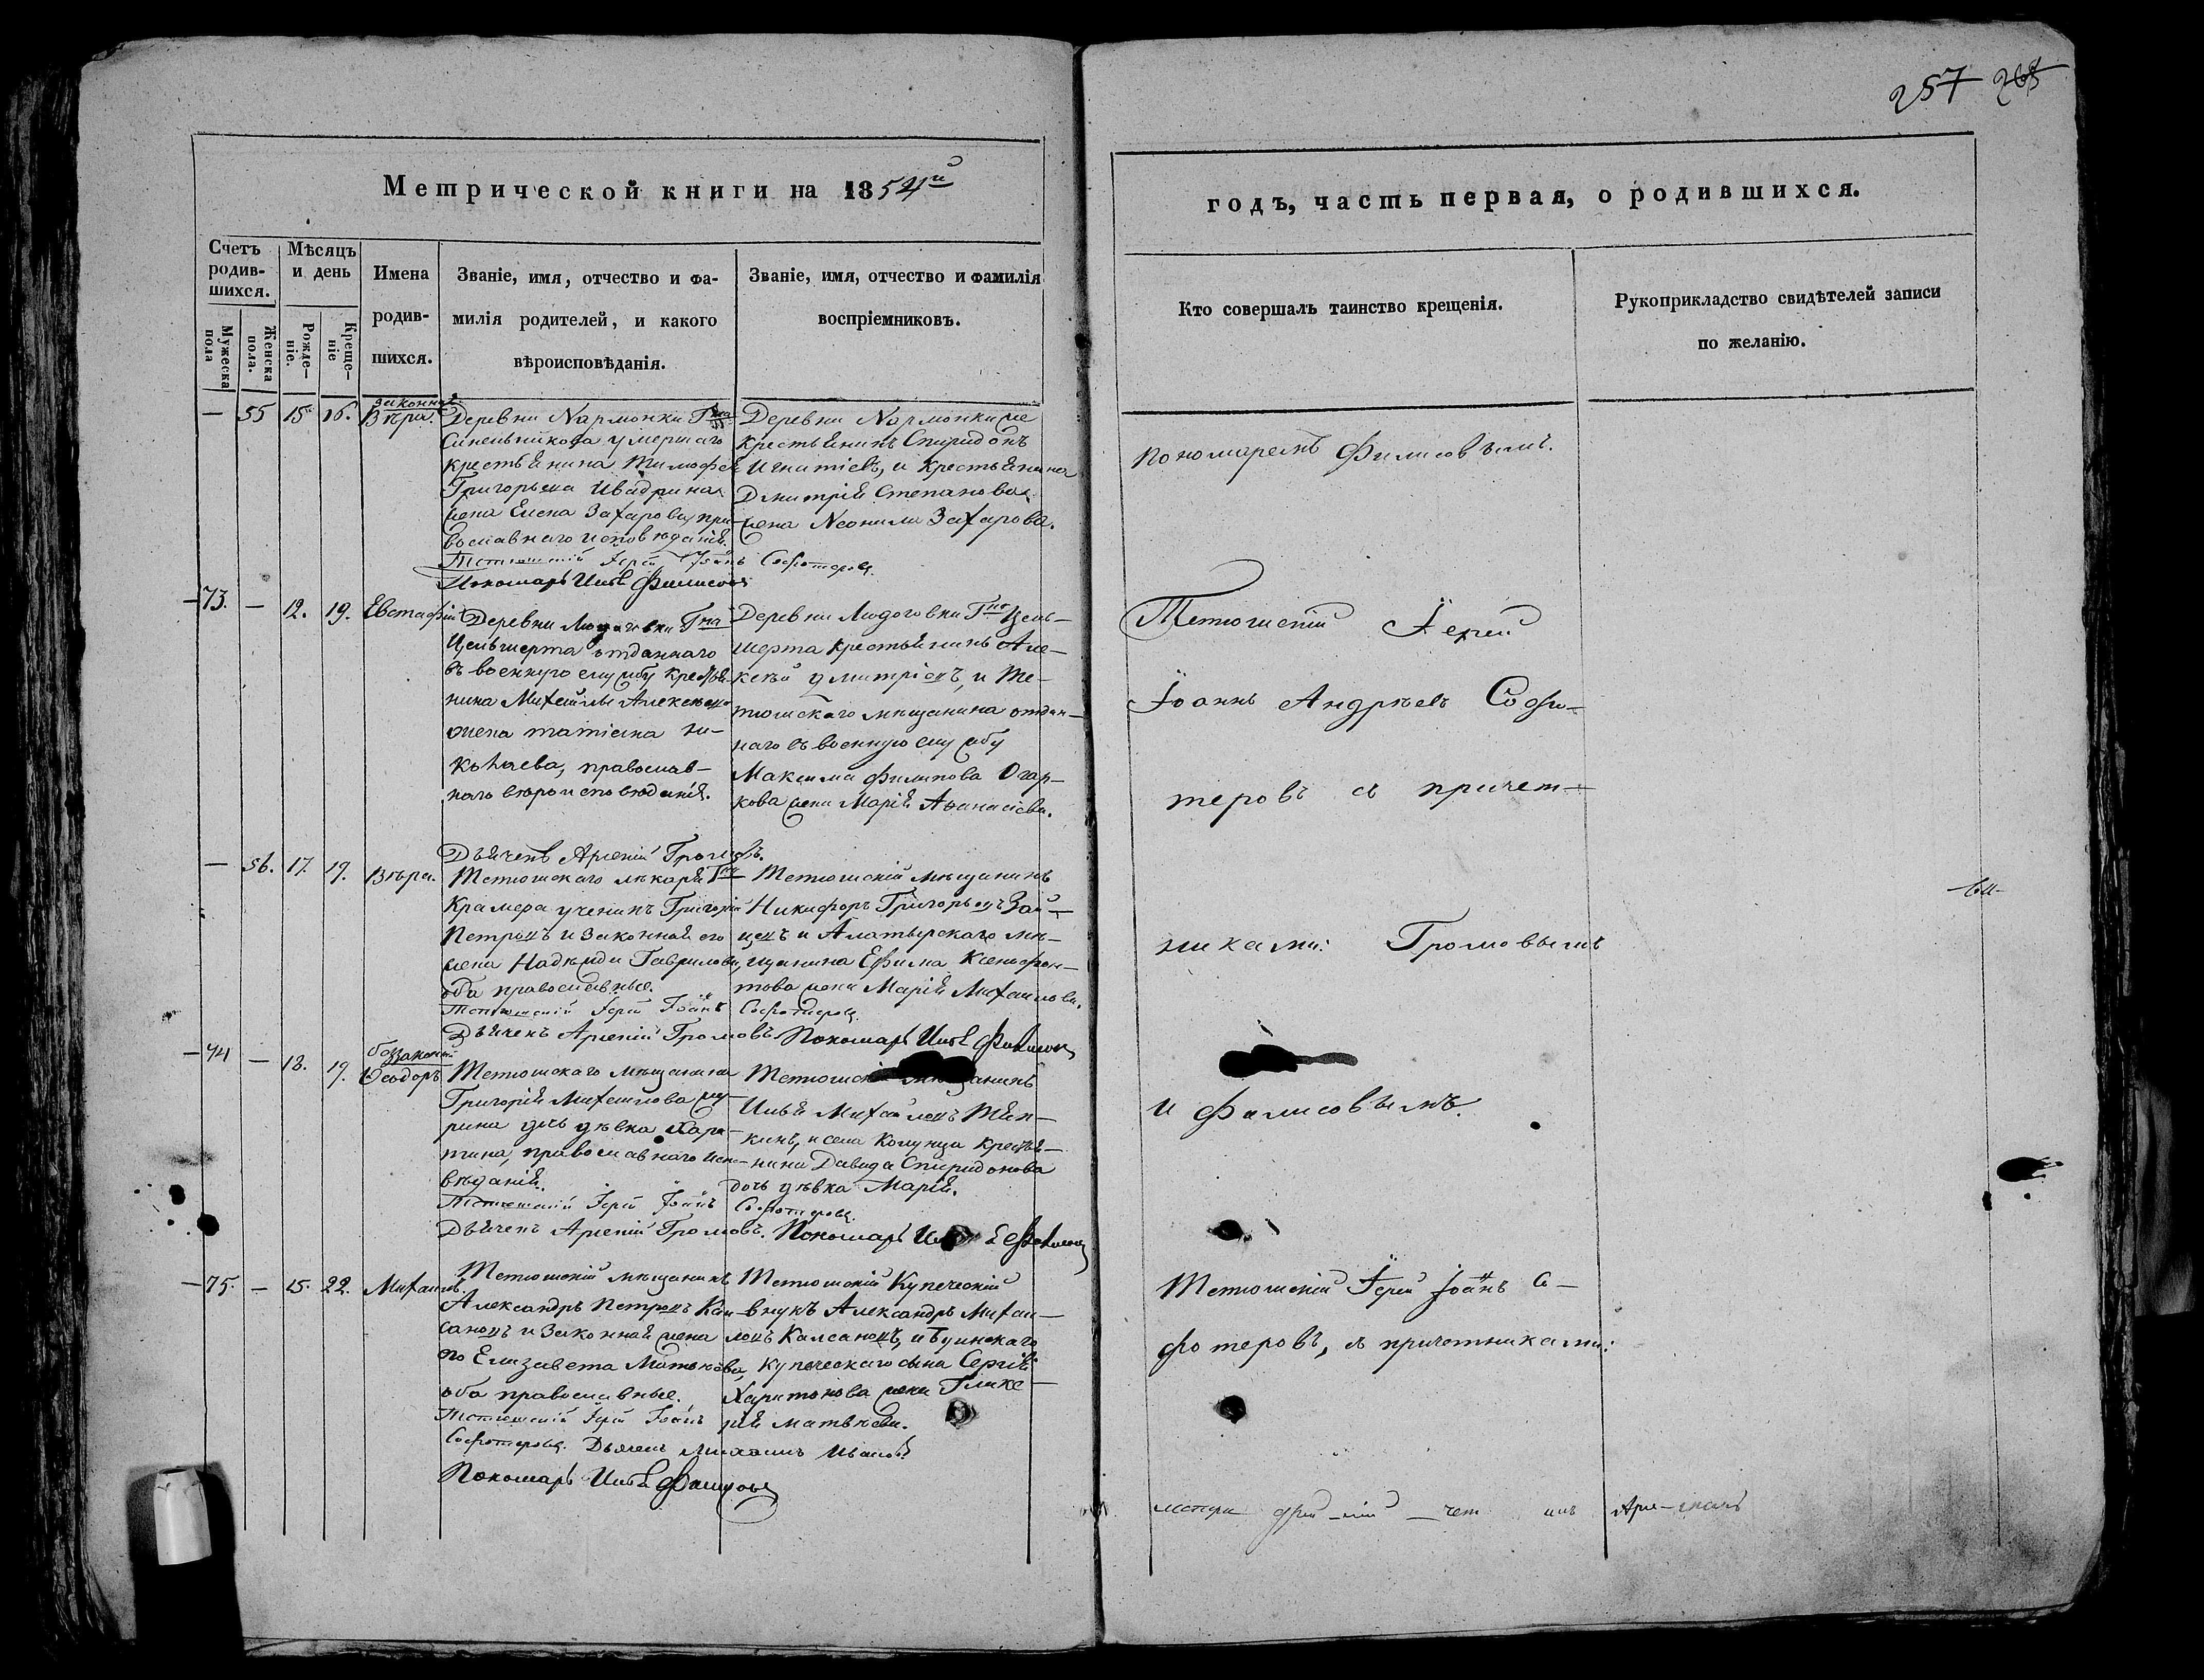 257 265
Метрической книги на 1854й
годъ, часть первая, о родившихся.
Счетъ родив-шихся.
Мужеска пола
Женска пола.
Мѣсяцъ и день
Рожде-ніе.
Креще-ніе
Имена
родив-
шихся.
Званіе, имя, отчество и фа-
милія родителей, и какого
вѣроисповѣданія.
Званіе, имя, отчество и фамилія
воспріемниковъ.
Кто совершалъ таинство крещенія.
Рукоприкладство свидѣтелей записи
по желанію.
— 55 15 16.
Вѣра.
Деревни Кармонки Гна
Синельникова умершаго
крестьянина Тимофея
Григорьева
жена Елена Захарова, пра-
вославнаго исповѣданія.
Тетюшскій Іерей Іоаннъ Софотеровъ.
Пономарь Илья Филисовъ
Деревни Кармонки же
крестьянинъ Спиридонъ
Игнатіевъ, и крестьянина
Дмитрія Степанова
жена Неонила Захарова.
пономаремъ Филисовымъ.
73. — 12. 19. Евстафій
Деревни Людоговки Гна
Цельшерта отданнаго
въ военную службу крестья-
нина Михаила Алексѣева
жена Татіана Ни-
колаева, православ-
наго вѣроисповѣданія.
Дьячекъ Арсеній Громовъ.
Деревни Людоговки Гна Цель-
шерта крестьянинъ Але-
ксѣй Дмитріевъ, и Те-
тюшскаго мѣщанина отдан-
наго въ военную службу
Максима Филипова Огар-
кова жена Марія Аѳанасіева.
Тетюшскій Іерей
Іоаннъ Андреевъ Софо-
теровъ съ причет-
никами: Громовымъ
и Филисовымъ.
— 56. 17. 19. Вѣра.
Тетюшскаго лѣкаря Гна
Крамера ученикъ Григорій
Петровъ и законная его
жена Надежда Гаврилова,
оба православные.
Тетюшскій Іерей Іоаннъ Софотеровъ.
Дьячекъ Арсеній Громовъ. Пономарь Илья Филисовъ
Тетюшскій мѣщанинъ
Никифоръ Григорьевъ Зай-
цевъ и Алатырскаго мѣ-
щанина Ефима Ксенофон-
това жена Марія Михаилова.
74 — 18. 19.
беззаконный
Ѳеодоръ
Тетюшскаго мѣщанина
Григорія Михаилова
дочь дѣвка Хари-
тина, православнаго испо-
вѣданія.
Тетюшскій Іерей Іоаннъ Софотеровъ.
Дьячекъ Арсеній Громовъ. Пономарь Илья Филисовъ
Тетюшскій мѣщанинъ
Илья Михайловъ Тяп-
кинъ, и села Колунца крестья-
нина Давида Спиридонова
дочь дѣвка Марія.
75. — 15. 22. Михаилъ.
Тетюшскій мѣщанинъ
Александръ Петровъ Кал-
сановъ и законная жена
его Елизавета Матвѣева,
оба православные.
Тетюшскій Іерей Іоаннъ
Софотеровъ. Дьячекъ Михаилъ Ивановъ
Пономарь Илья Филисовъ
Тетюшскій Купеческій
внукъ Александръ Михаи-
ловъ Калсановъ, и Буинскаго
купеческаго сына Сергія
Харитонова жена Глике-
рія Матвѣева.
Тетюшскій Іерей Іоаннъ Со-
фотеровъ, съ причетниками: